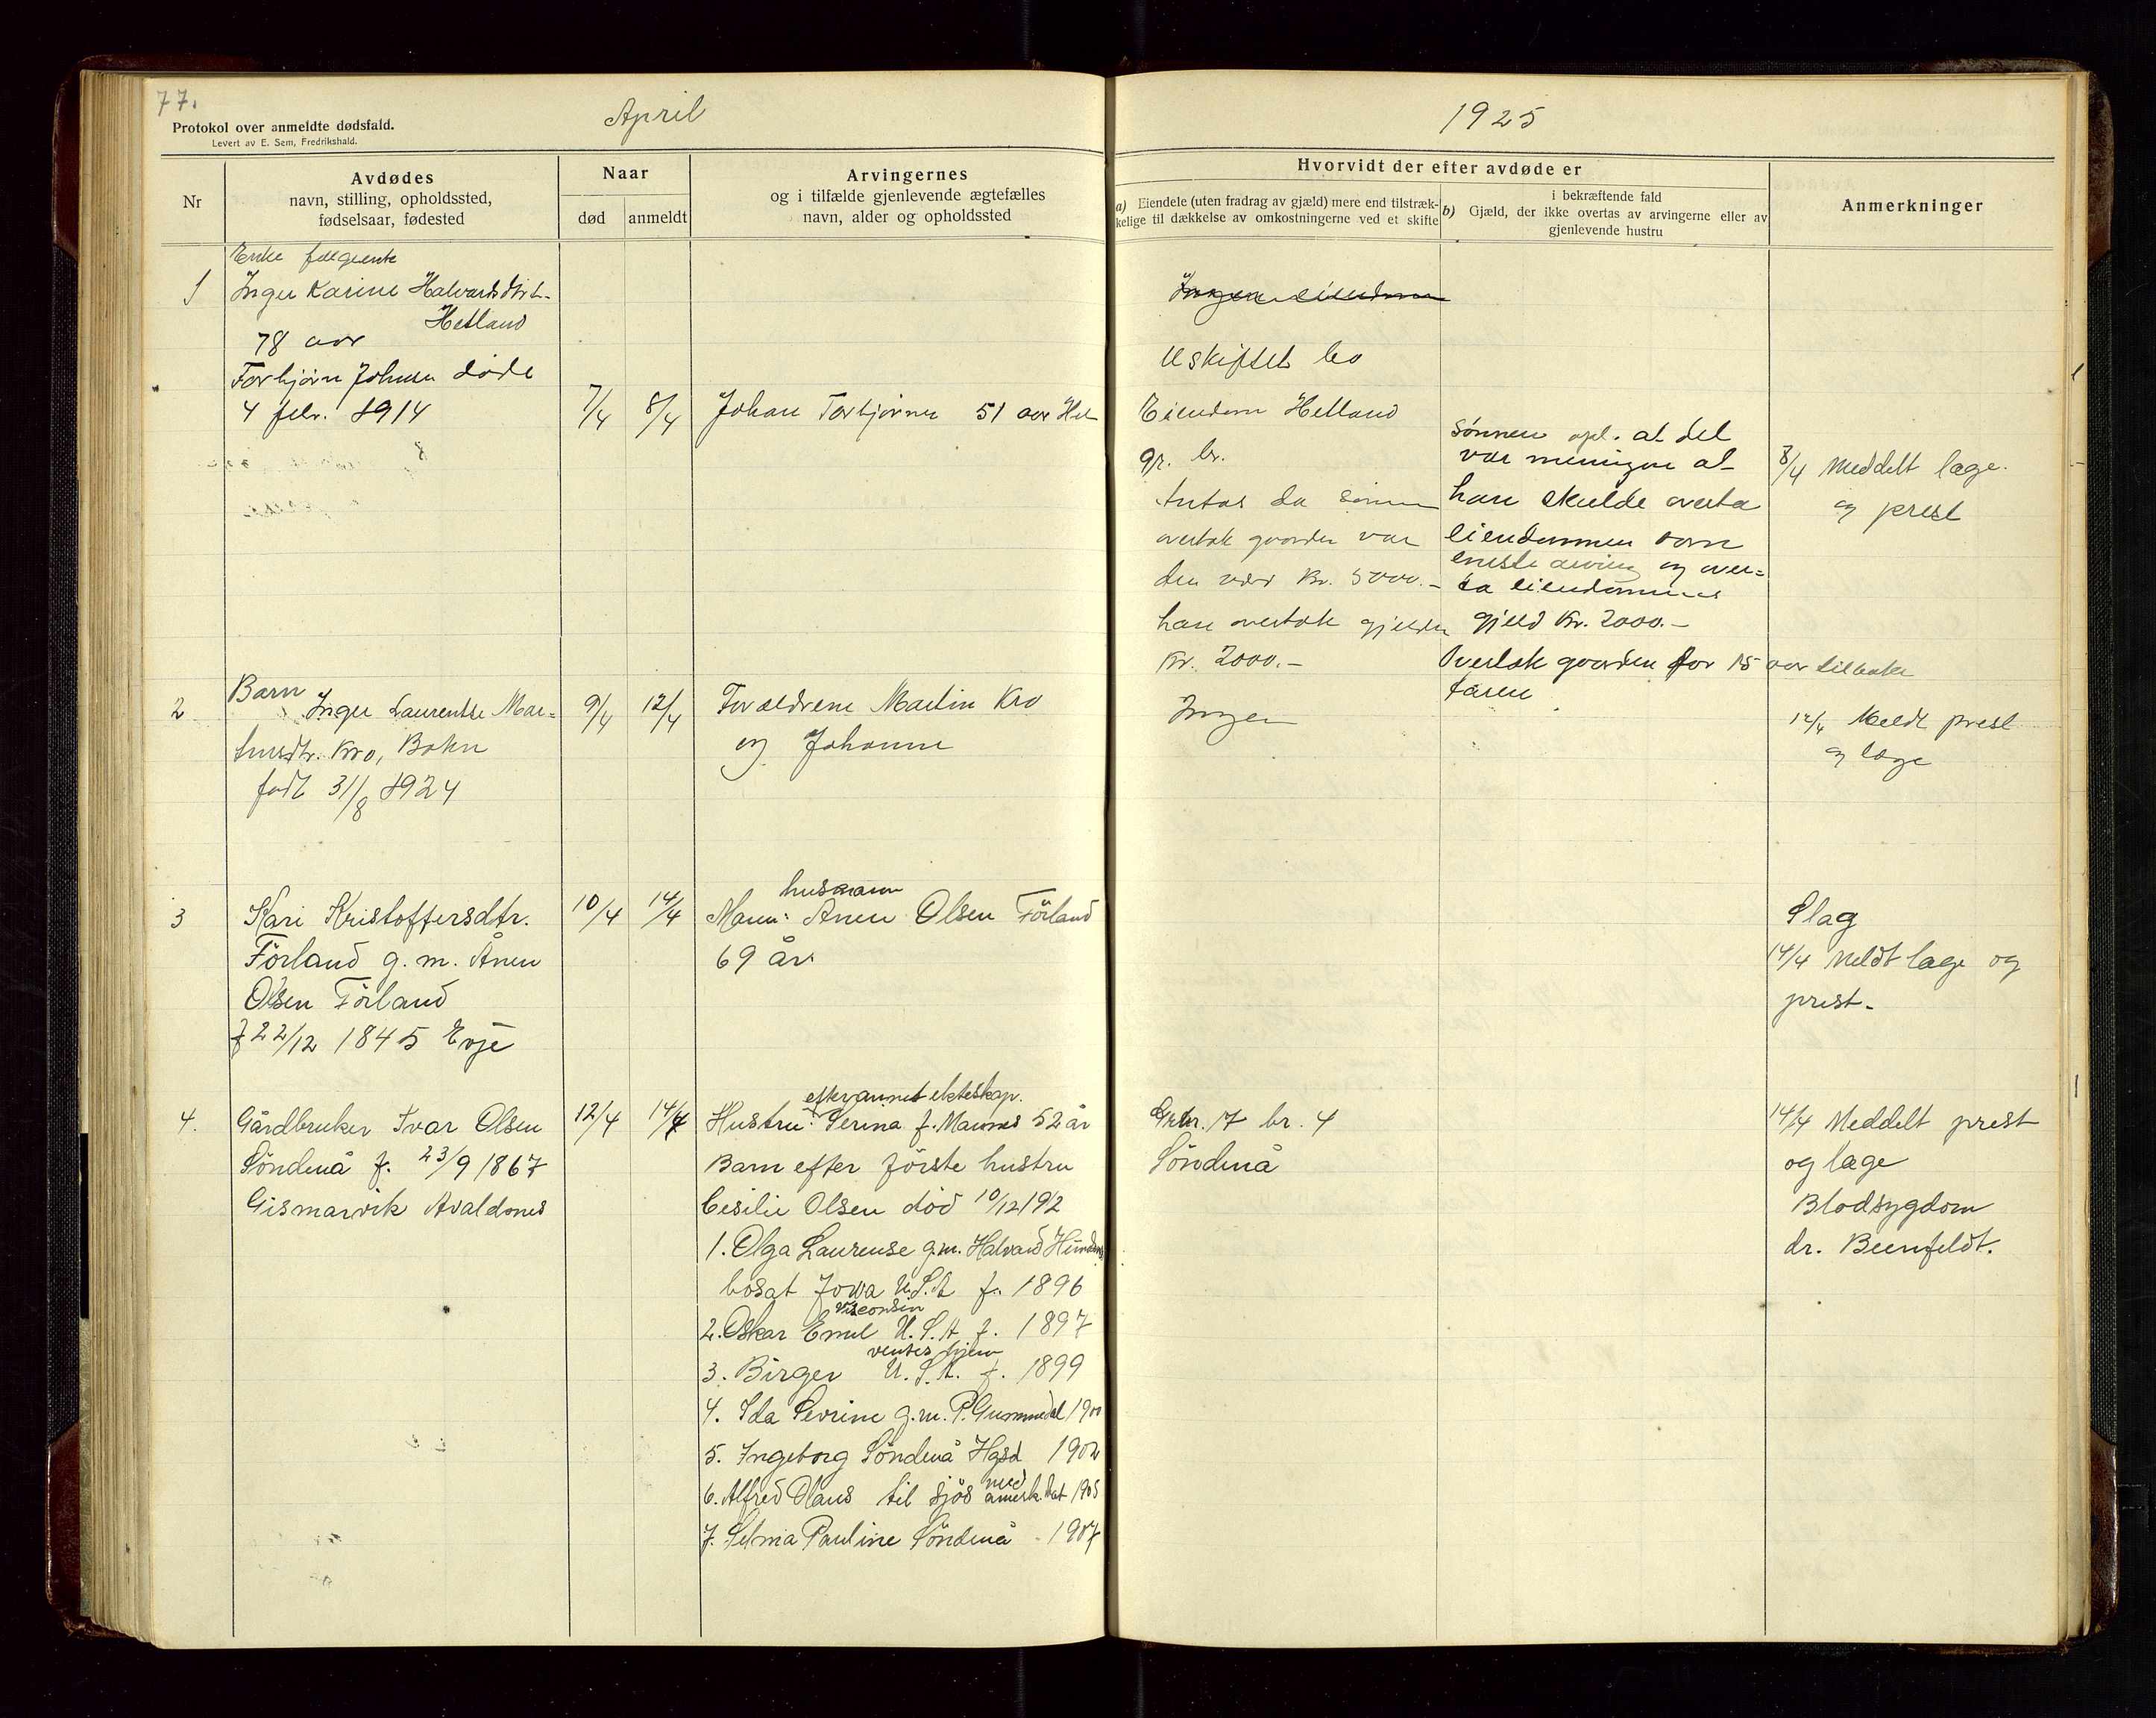 77.
April
1925
Protokol over anmeldte dødsfald.
Levert av E. Sem, Fredrikshald.
Nr
Avdødes
navn, stilling, opholdssted,
fødselsaar, fødested
Naar
død
anmeldt
Arvingernes
og i tilfælde gjenlevende ægtefælles
navn, alder og opholdssted
Hvorvidt der efter avdøde er
a) Eiendele (uten fradrag av gjæld) mere end tilstræk-
kelige til dækkelse av omkostningerne ved et skifte
i bekræftende fald
b) Gjæld, der ikke overtas av arvingerne eller av
gjenlevende hustru
Anmerkninger
1
Enke
Inger Karine Halvardsdtr.
Hetland
78 aar
Torbjørn Johnsen døde
4 febr. 1914
7/4
8/4
Johan Torbjørnsen 51 aar Het
Ingen eiendom
Uskiftet bo
Eiendom Hetland
gr. br.
Antas da sønnen
overtok gaarden var
den værd Kr. 5000.-
han overtok gjelden
Kr. 2000.-
sønnen opl. at det
var meningen at
han skulde overta
eiendommen som
eneste arving og over=
ta eiendommens
gjeld Kr. 2000.-
Overtok gaarden for 15 aar tilbake
faren
8/4 Meddelt læge.
og prest
2
Barn
Inger Laurentse Mar=
tinsdtr. Kro, Bokn
født 31/8 1924
9/4
12/4
Forældrene Martin Kro
og Johanne
Ingen
12/4 Meldt prest
og læge
3
Kari Kristoffersdtr.
Förland g. m. Ånen
Olsen Förland
f 22/12 1845 Evje
10/4
14/4
husmann
Mann: Ånen Olsen Förland
69 år
Slag
14/4 Meldt læge og
prest.
4.
Gårdbruker Ivar Olsen
Söndenå f. 23/9 1867
Gismarvik Avaldsnes
12/4
14/4
efter annet ekteskap.
Hustru: Serina f. Mannes 52 år
Barn efter förste hustru
Cesilie Olsen död 10/12 1912
1. Olga Laurense g.m. Halvard
bosat Jowa U.S.A f. 1896
Visconsin
2. Oskar Emil U.S.A f. 1897
ventes hjem
3. Birger U.S.A. f. 1899
4. Ida Serine g.m. P. Gummedal 1900
5. Ingeborg Söndenå Hgsd 1902
med
6. Alfred Olaus til sjös amerk. båt 1905
7. Selma Pauline Söndenå - 1907
Grbr. 17 br. 4
Söndenå
14/4 Meddelt prest
og læge
Blodsygdom
dr. Beenfeldt.